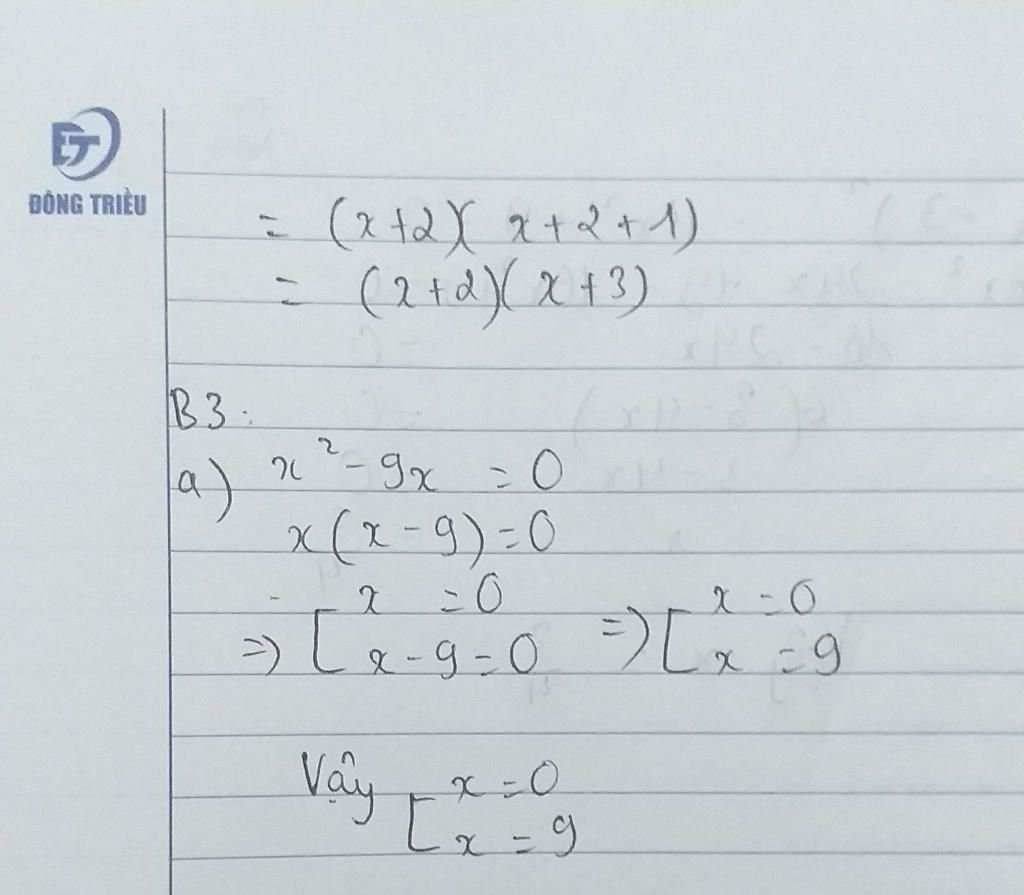 ET
ĐÔNG TRIỀU
= (x+2)(x+2+1)
= (x+2)(x+3)
B3:
a) x² - 9x = 0
x(x - 9) = 0
=> [ x = 0 => [ x = 0
x - 9 = 0 x = 9
Vậy [ x = 0
x = 9